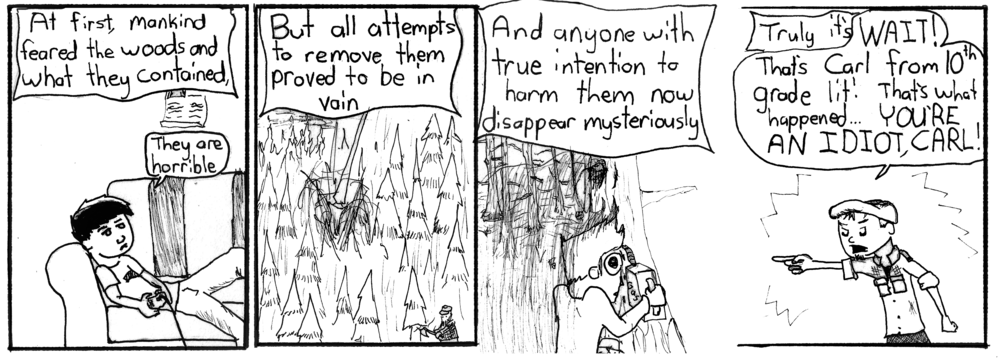 At first, mankind
feared the woods and
what they contained,
They are
horrible
But all attempts
to remove them
proved to be in
vain
And anyone with
true intention to
harm them now
disappear mysteriously
Truly it's
WAIT!
That's Carl from 10th
grade lit! That's what
happened... YOU'RE
AN IDIOT, CARL!